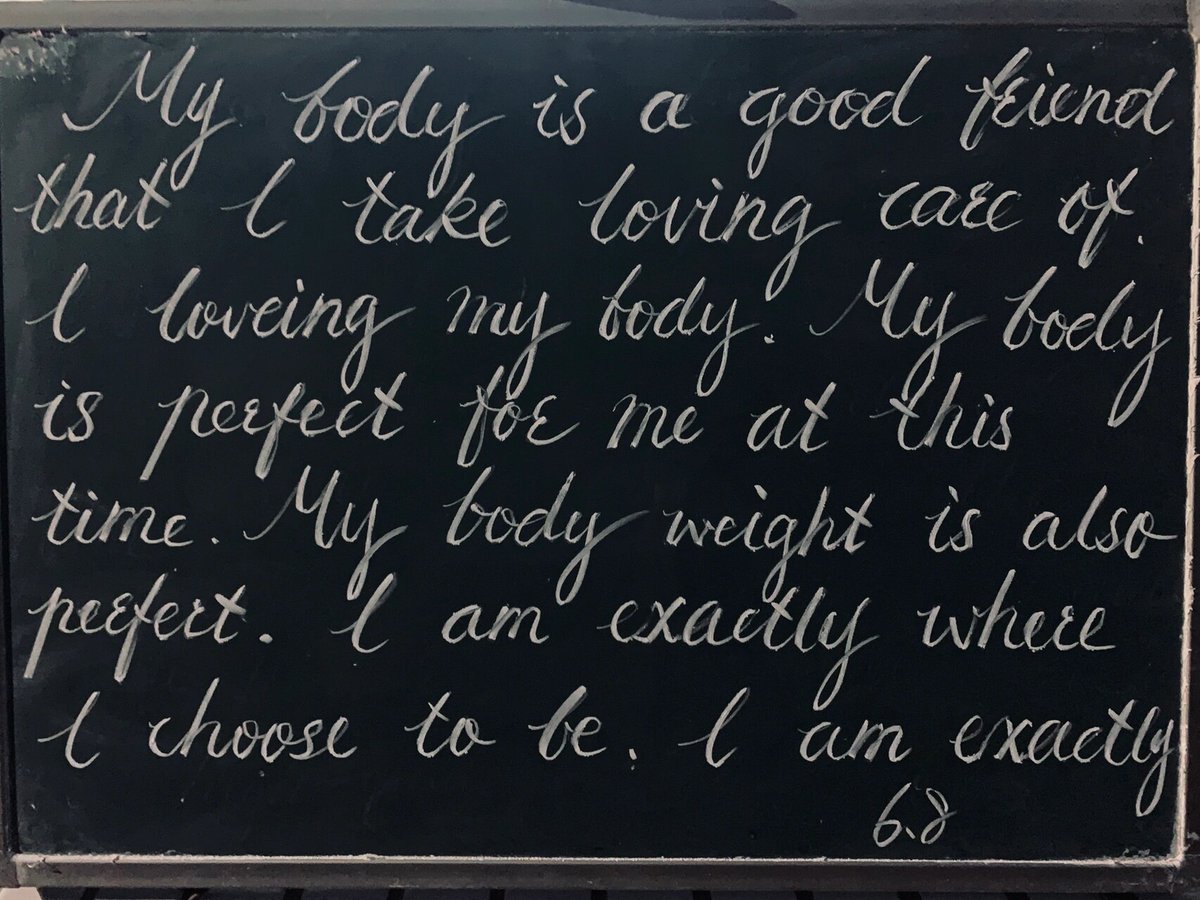 My body is a good feiend
that I take loving care of.
I loveing my body. My body
is perfect for me at this
time. My body weight is also
perfect. I am exactly where
I choose to be. I am exactly
6.8